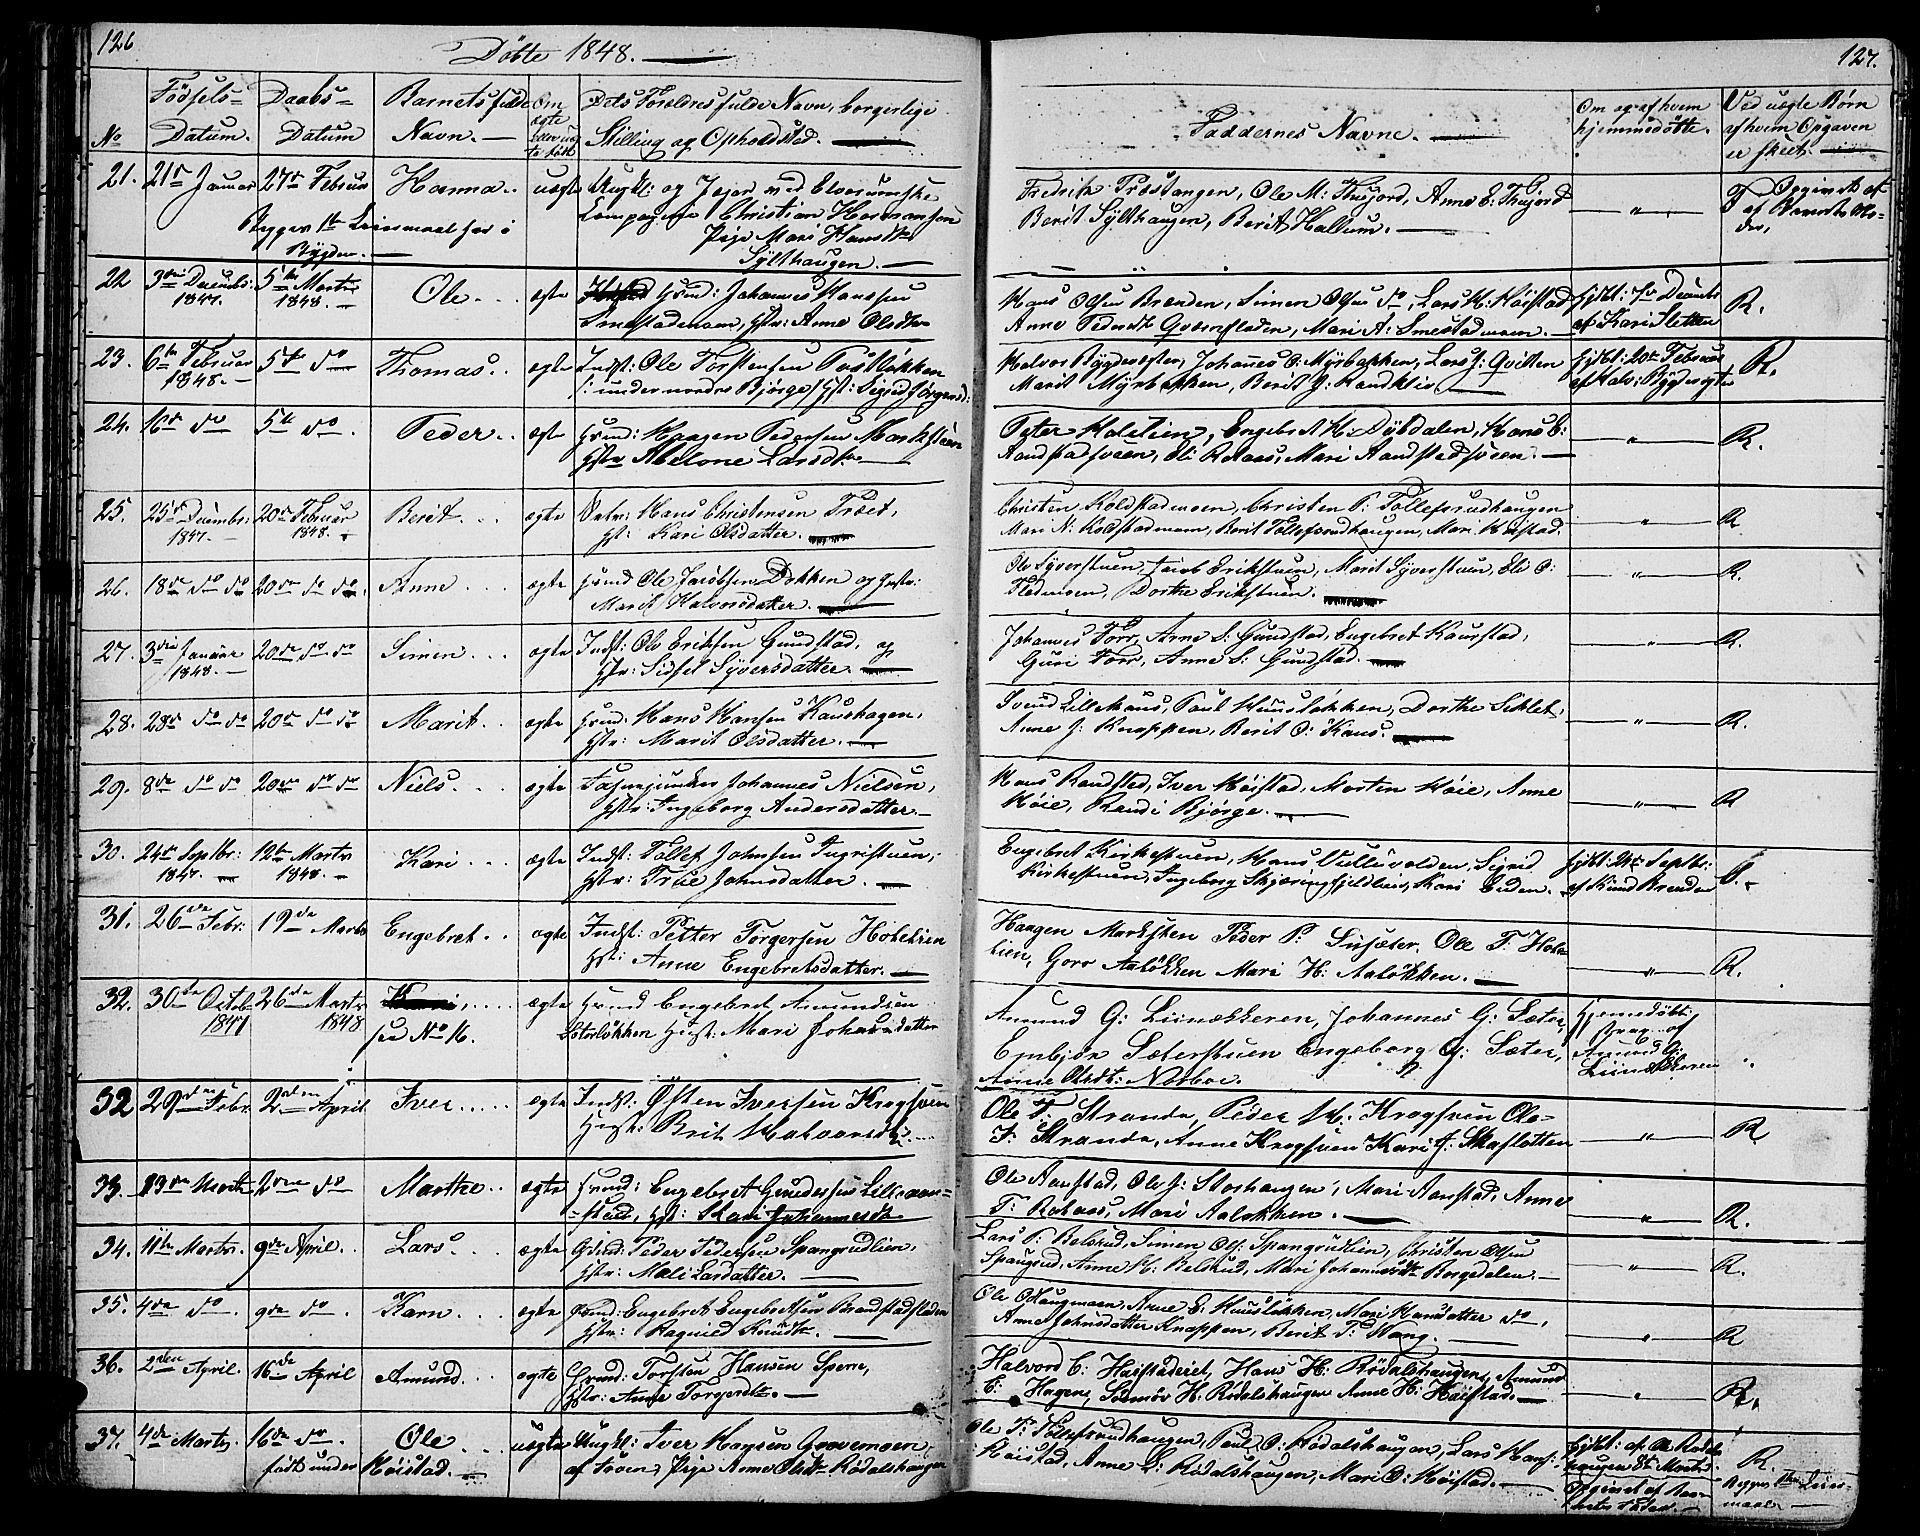 126
Döbte 1848.
No
Födsels-
Datum.
Daabs-
Datum
Barnets fulde
Navn.
Om
ægte
Dets Forældres fulde Navn, borgerlige
Stilling og Opholdsted.
21.
21de Januar
27de Februar
Hanna
uægte
Ungkl: og Jæger ved Elverumske
Compagnie Christian Hermansen
Pige Mari Hansdtr
Sylthaugen.
Begges 1te Leiermaal her i
Bygden.
22
3die Decembr:
1847.
5te Marts
1848.
Ole
ægte
Grmd: Johannes Hanssen
Smestadmoen, Hstr: Anne Olsdtr
23.
6te Februar
1848.
5te do
Thomas.
ægte
Indst: Ole Torstensen
/: under nordre Bjørge/ Hst: Sigrid Jörgensd:
24.
16de do
5te do.
Peder
ægte
Grmd: Haagen Pedersen Marksteen
Hstr Abelone Larsdtr.
25.
25de Decembr:
1847.
20de Februar
1848.
Berit
ægte
Hans Christensen Træet,
Hst: Kari Olsdatter.
26.
18de do do
20de do do.
Anne
ægte
Grmd Ole Jacobsen Dokken og Hustr:
Marit Halvorsdatter.
27.
3die Januar
1848.
20de do do
Simen
ægte
Indst: Ole Eriksen Gundstad, og
Hstr: Sidsel Syversdatter.
28.
28de do do
20de do do
Marit
ægte
Grmd: Hans Hansen Haushagen,
Hstr: Marit Olsdatter.
29.
8de do do
20de do do
Niels
ægte
Johannes Nielsen,
Hstr: Ingeborg Andersdatter.
30.
24de Septbr:
1847.
12te Marts
1848.
Kari
ægte
Indst: Tollef Johnsen Ingristuen,
Hstr: Trüe Johnsdatter.
31.
26de Febr:
19de Marts
Engebret
ægte
Indst: Petter Torgersen Holelien
Hst: Anne Engebretsdatter.
32.
30te Octob
1847
26de Marts
1848
see No 16.
ægte
Grmd Engebret Amundsen
Storløkken Hgst: Mari Johansdatter
32
29den Febr.
2den April
Iver
ægte
Indst: Østen Iversen Krogsveen
Hgst: Brit Halvorsdtr.
33.
13de Marts
2den do
Marthe
ægte
Grmd: Engebret Gundersen Lilleaan-
-stad, Hst: Kari Johannesdtr
34.
11te Marts.
9de April
Lars
ægte
Grmd: Peder Pedersen Spangrudlien,
Hstr: Mali Larsdatter.
35.
4de do
9de do
Karn
ægte
Grmd: Engebret Engebretsen Brandstadfladen
Hstr: Ragnild Knudtr.
36.
2den April.
16de April
Amund
ægte
Grmd: Torsten Hansen Sperre,
Hstr: Anne Torgersdtr.
37.
4de Marts.
16de do
født under
Ole
Høistad.
uægte
Ungkl: Iver Hansen Gravemoen
af Froen, Pige Anne Olsdtr Rödalshaugen
127.
Faddernes Navne.
Om og af hvem
hjemmedöbte.
Ved uægte Børn
af hvem Opgaven
er skeet.
Fredrik Præstangen, Ole M: Thujord, Anne E: Thujord
Berit Sylthaugen, Berit Hallum.
Hans Olsen Brænden, Simen Olsen do, Lars H: Høistad
Anne Pedersdt Qværnfladen, Mari A: Smestadmoen.
hjdbt: 7de Decembr
af Kari Sletten
R.
Halvor Bygdevægter, Johannes O: Myrbakken, Lars J: Qvilten
Marit Myrbakken, Berit J: Randklev
hjdbt: 20de Februar
af Halv: Bygdevægter
R.
Peter Holelien, Engebret H: Dybdalen, Hans E:
Aandstadsveen, Eli Rolaas, Mari Aandstadsveen.
R.
Christen Koldstadmoen, Christen P: Tollefsrudhaugen
Mari N: Kolstadmoen, Berit Tollefsrudhaugen, Mari Harstad.
R
Ole Syverstuen, Jacob Erikstuen, Marit Syverstuen, Eli O:
Flodmoen, Dorthe Erikstuen.
R.
Johannes Forr, Arne S: Gundstad, Engebret Kaurstad,
Guri Forr, Anne S: Gundstad.
R.
Svend Lillehaus, Paul Huusløkken, Dorthe Siklet,
Anne J: Knappen, Berit O: Haus.
R
Hans Randsted, Iver Høistad, Morten Høie, Anne
Høie, Randi Bjørge.
R
Engebret Kirkestuen, Hans Ulleivolden, Sigrid
Kirkestuen, Ingeborg Skjæringfjeldlien, Kari Enden.
hjdbt: 24de Septbr:
af Knud Brenden
Haagen Marksteen Peder P: Susæter, Ole T: Hole-
lien, Goro Aaløkken Mari H: Aaløkken.
R.
Amund G: Liinækkeren, Johannes G: Sæter,
Embjør Sæterstuen Engeborg G: Sæter,
Anne Olsdt: Norboe.
Hjemmedöbt:
Amund G:
Liinækkeren
Ole T: Strande, Peder H: Krogsveen Ole
T: Strande, Anne Krogsveen Kari J: Skafletten
R
Ole Aanstad, Ole J: Storhaugen, Mari Aanstad, Anne
T: Rolaas, Mari Aaløkken.
R.
Lars P: Belsrud, Simen Ols: Spangrudlien, Christen Olsen
Spangrud, Anne H: Belsrud, Mari Johannesdtr Borgedalen.
R.
Ole Haugmoen, Arne E: Huusløkken, Mari Hansdatter do,
Anne Johnsdatter Knappen, Berit T: Wang.
R
Halvord E: Harstaderiet, Hans H: Rödalshaugen, Amund
E: Hagen, H: Rödalshaugen Anne H: Harstad.
R.
Ole P: Tollefsrudhaugen, Paul O: Rödalshaugen, Lars Hans:
Høistad, Anne L: Rödalshaugen, Mari O: Høistad.
hjdbt: af Ole Rødals-
haugen 8de Marts.
Opgivet af Bar-
nets Fader.
R.
Begges 1ste Leier-
maal.